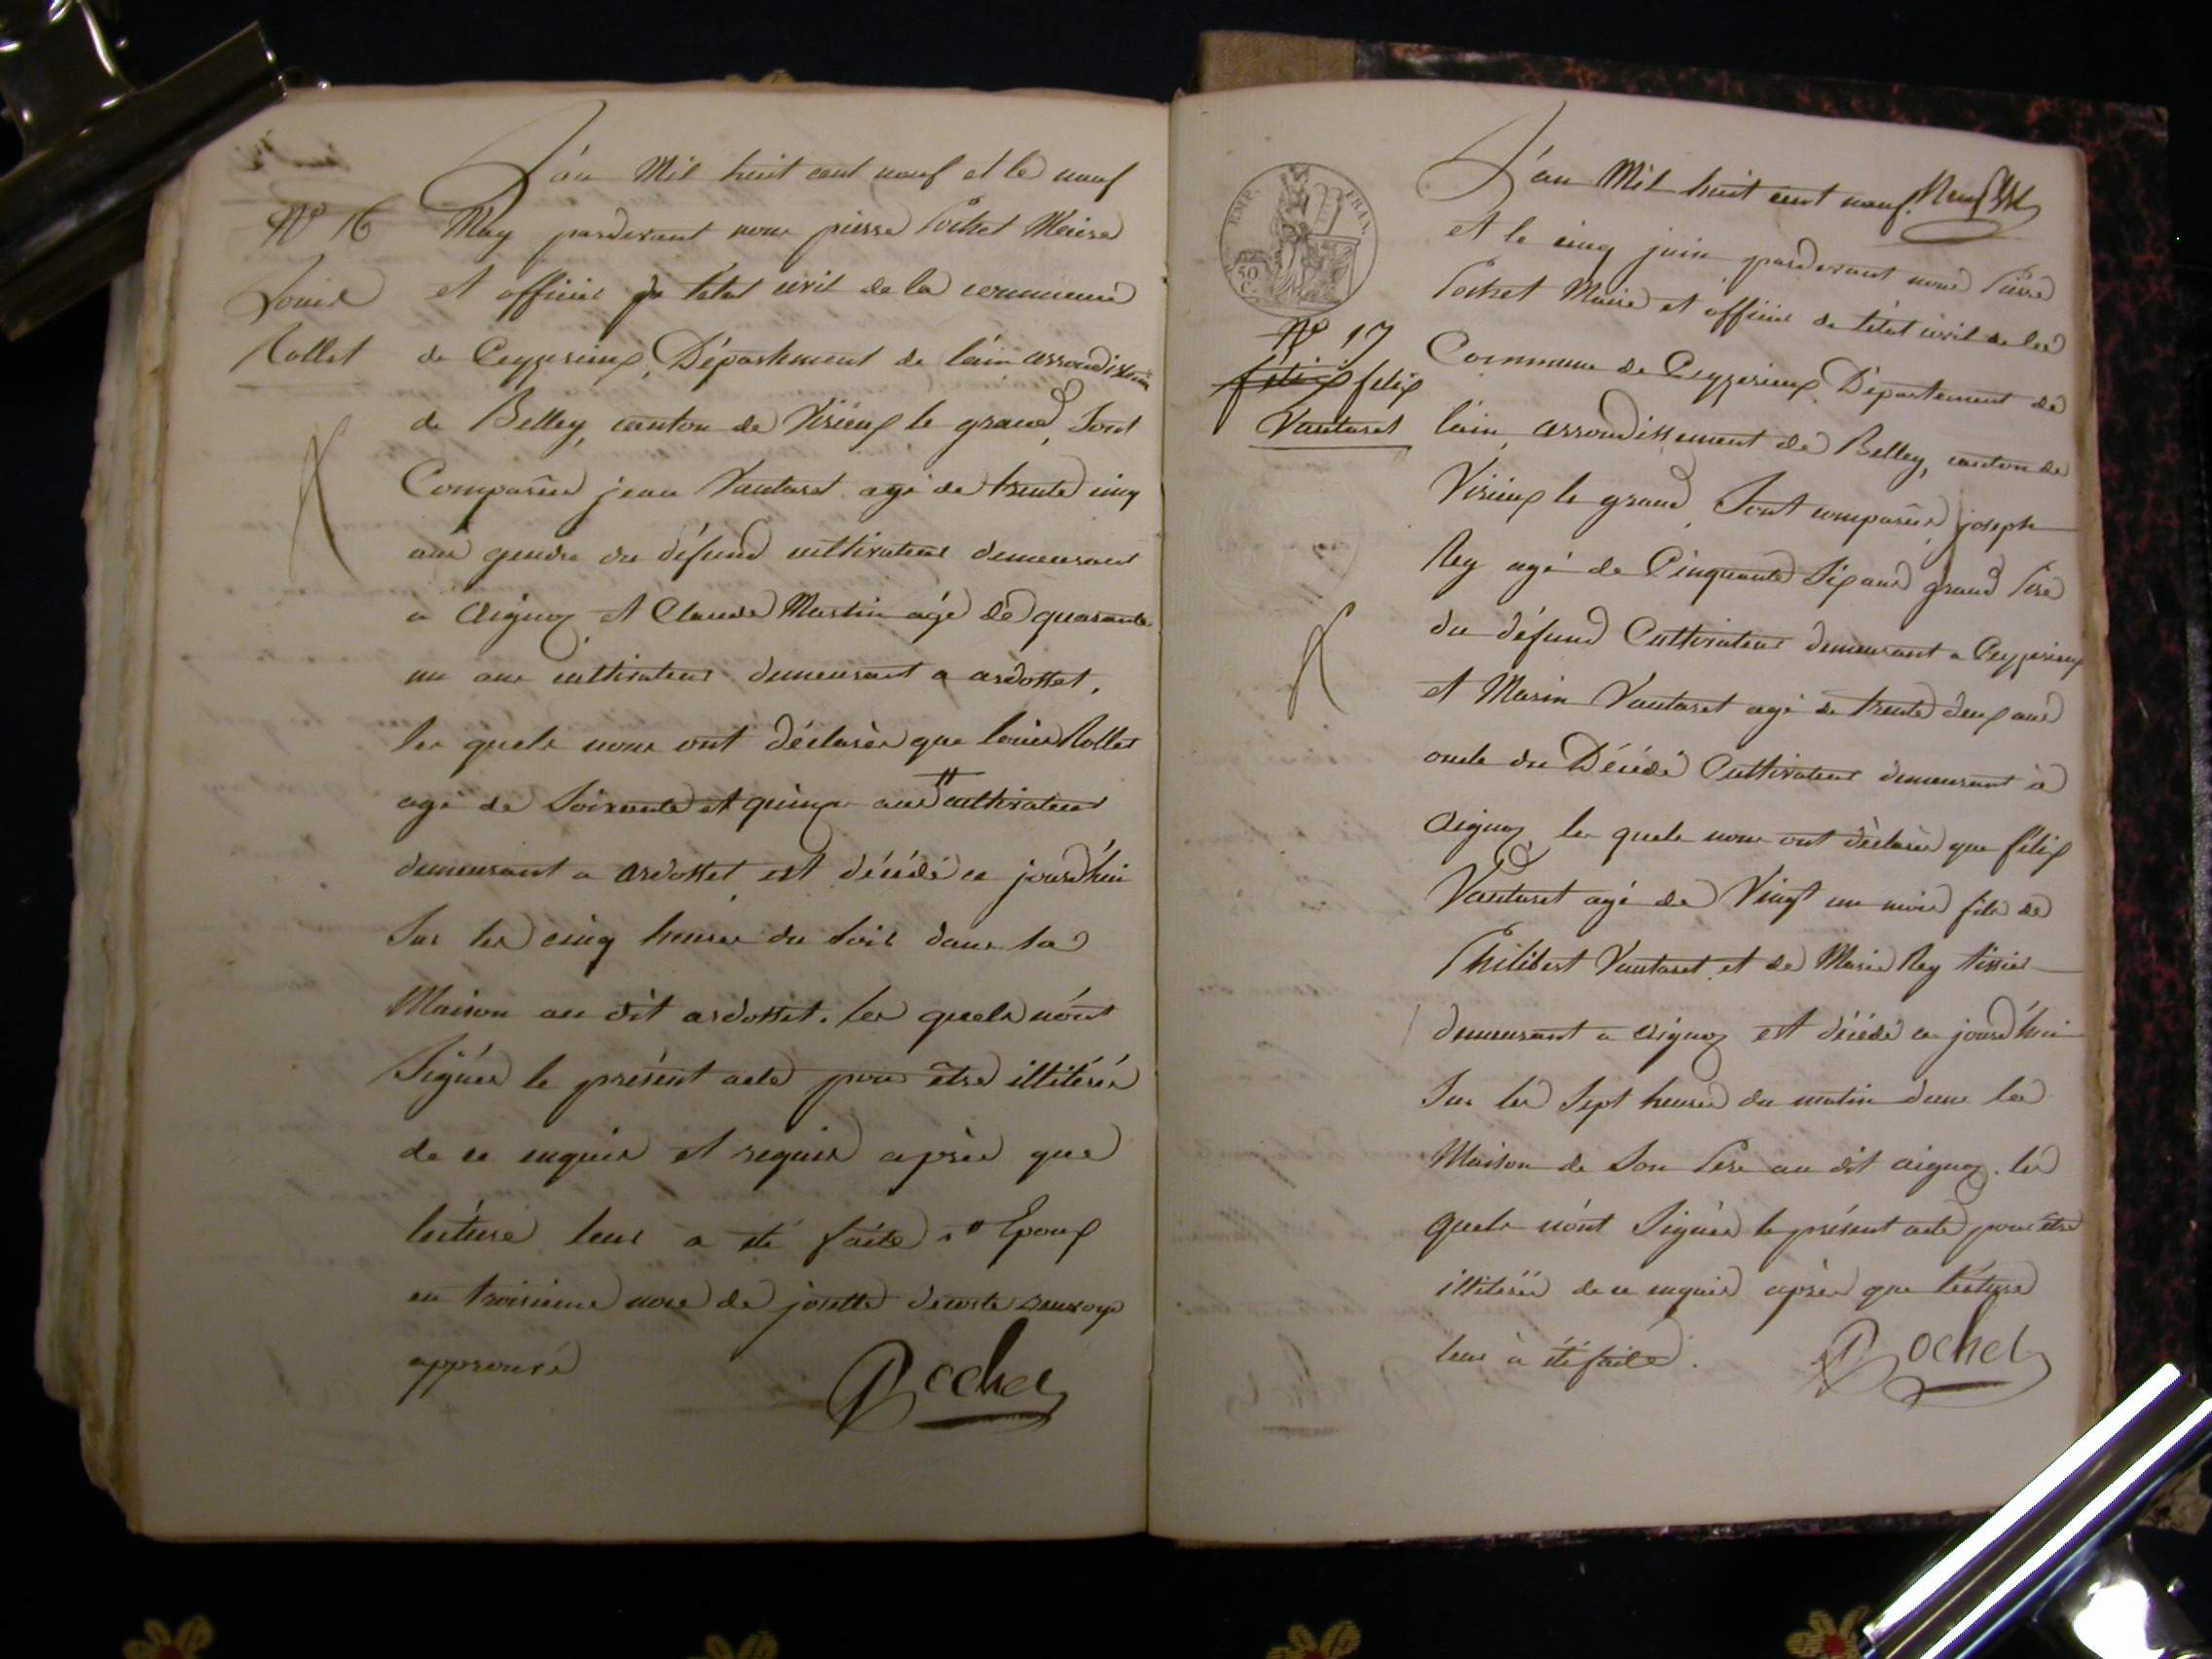 L'an Mil huit cent neuf et le neuf
N° 16 May pardevant nous pierre Pochet Maire
Louis et officier de l'état civil de la commune
Rollet de Ceyzerieux, Département de l'ain arrondissement
de Belley, canton de Virieux le grand, Sont
Comparus jean Vautaret agé de trente cinq
ans gendre du défund cultivateur demeurant
a aignoz et Claude Martin agé de quarante
un ans cultivateur demeurant a ardosset,
les quels nous ont déclarés que louis Rollet
agé de Soixante et quinze ans # cultivateur
demeurant a ardosset est décédé ce jourd'hui
Sur les cinq heures du soir dans sa
Maison au dit ardosset. les quels n'ont
Signés le présent acte pour être illitérés
de ce enquis et requis après que
lecture leur a été faite # Epoux
en troisieme noce de josette decoste renvoye
approuvé
P Pochet
EMP. FRAN.
50 C.
N° 17
félix felix
Vautaret
L'an Mil huit cent neuf
et le cinq juin pardevant nous Pierre
Pochet Maire et officier de l'état civil de la
Commune de Ceyzerieux, Département de
l'ain, arrondissement de Belley, canton de
Virieux le grand, Sont comparus joseph
Rey agé de Cinquante Six ans grand Père
du défund Cultivateur demeurant a Ceyzerieux
et Marin Vautaret agé de trente deux ans
oncle du Décédé Cultivateur demeurant à
aignoz, les quels nous ont déclarés que félix
Vautaret agé de Vingt un mois fils de
Philibert Vautaret et de Marie Rey tissier
demeurant a aignoz est décédé ce jourd'hui
Sur les Sept heures du matin dans la
Maison de Son Père au dit aignoz. les
quels n'ont Signés le présent acte pour être
illitérés de ce enquis après que lecture
leur à été faite.
P Pochet